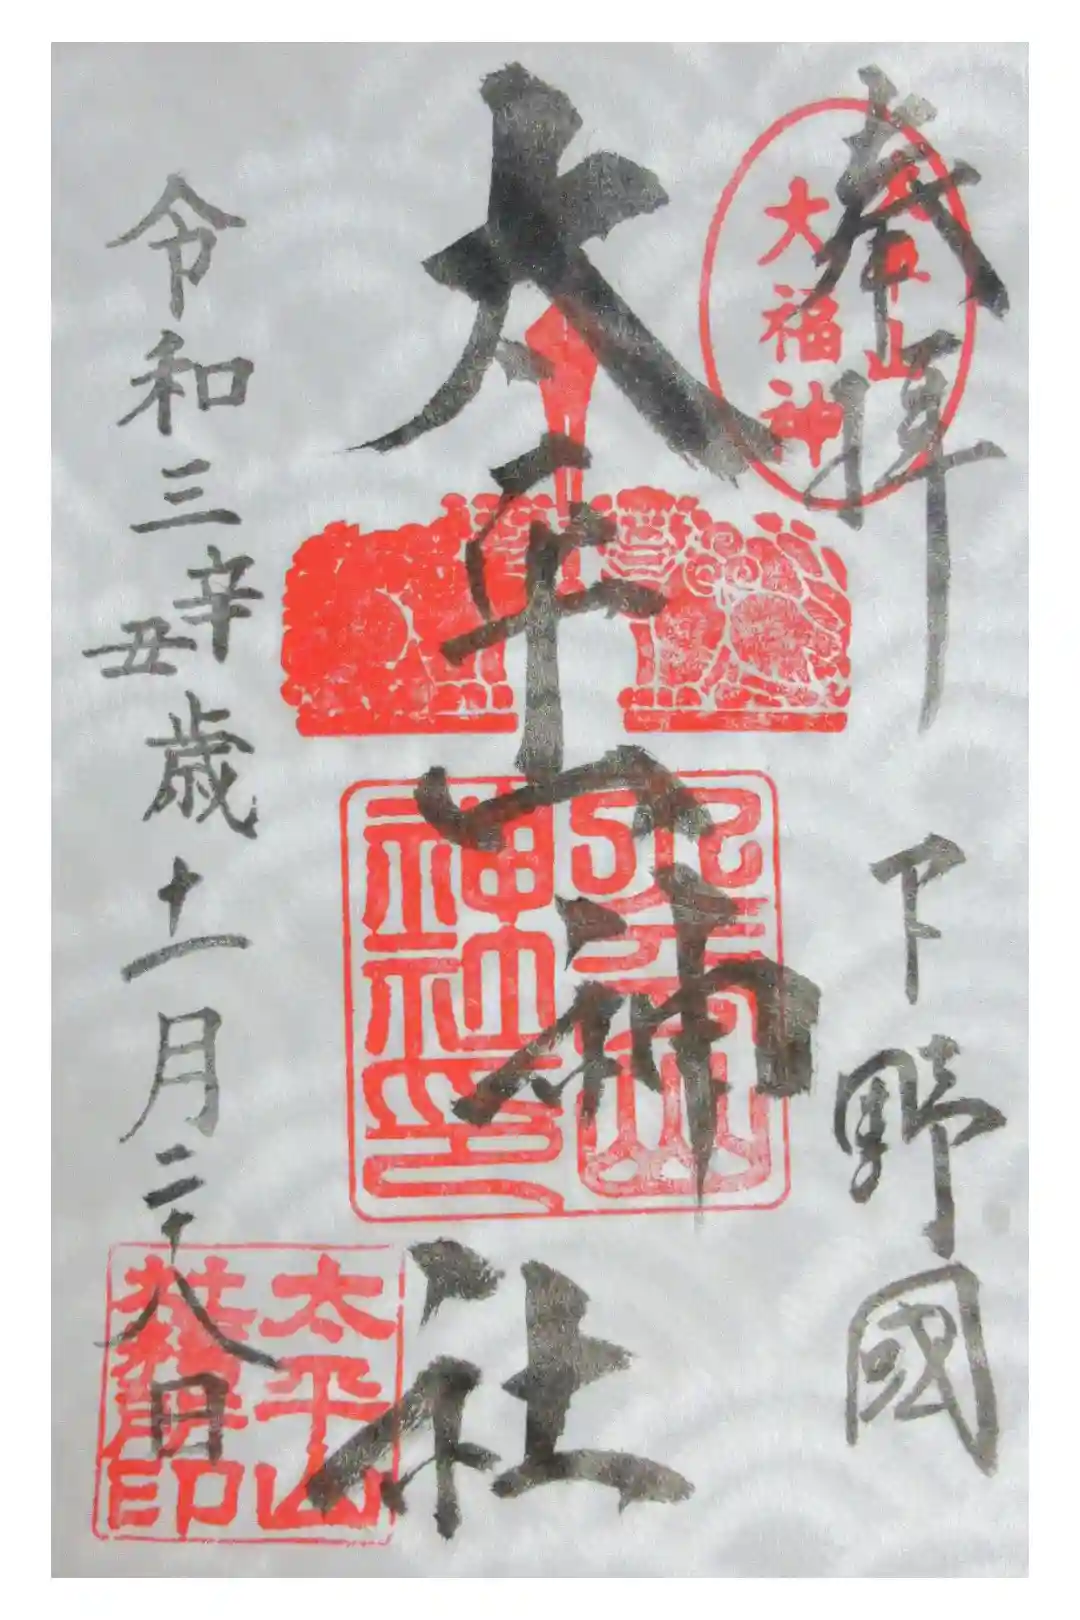 奉拝 下野國
太平山
大福神
太平山神社
太平山
神社印
令和三辛丑歳十一月二十八日
太平山